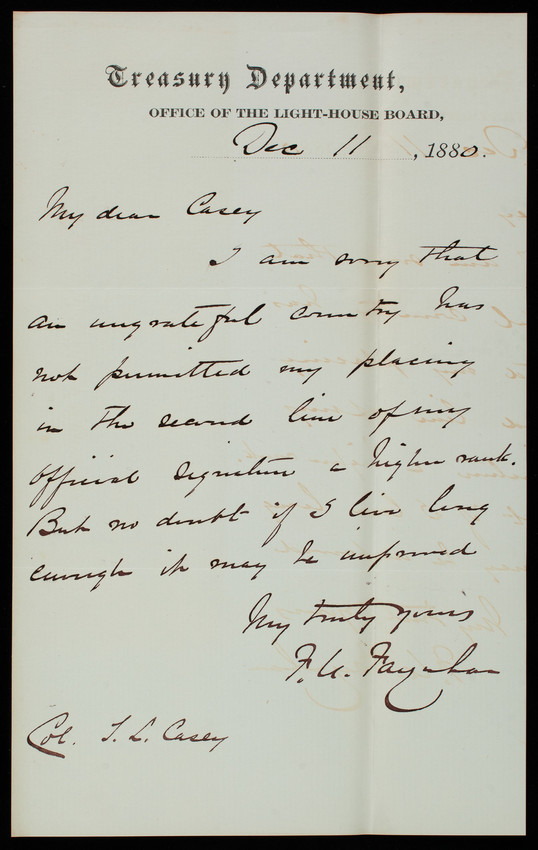 Treasury Department,
OFFICE OF THE LIGHT-HOUSE BOARD,
Dec 11, 1880.
My dear Casey
I am sorry that
an ungrateful country has
not permitted my placing
in the second line of my
official signature a higher rank.
But no doubt if I live long
enough it may be improved
My truly yours
F. U. Farquhar
Col. T. L. Casey